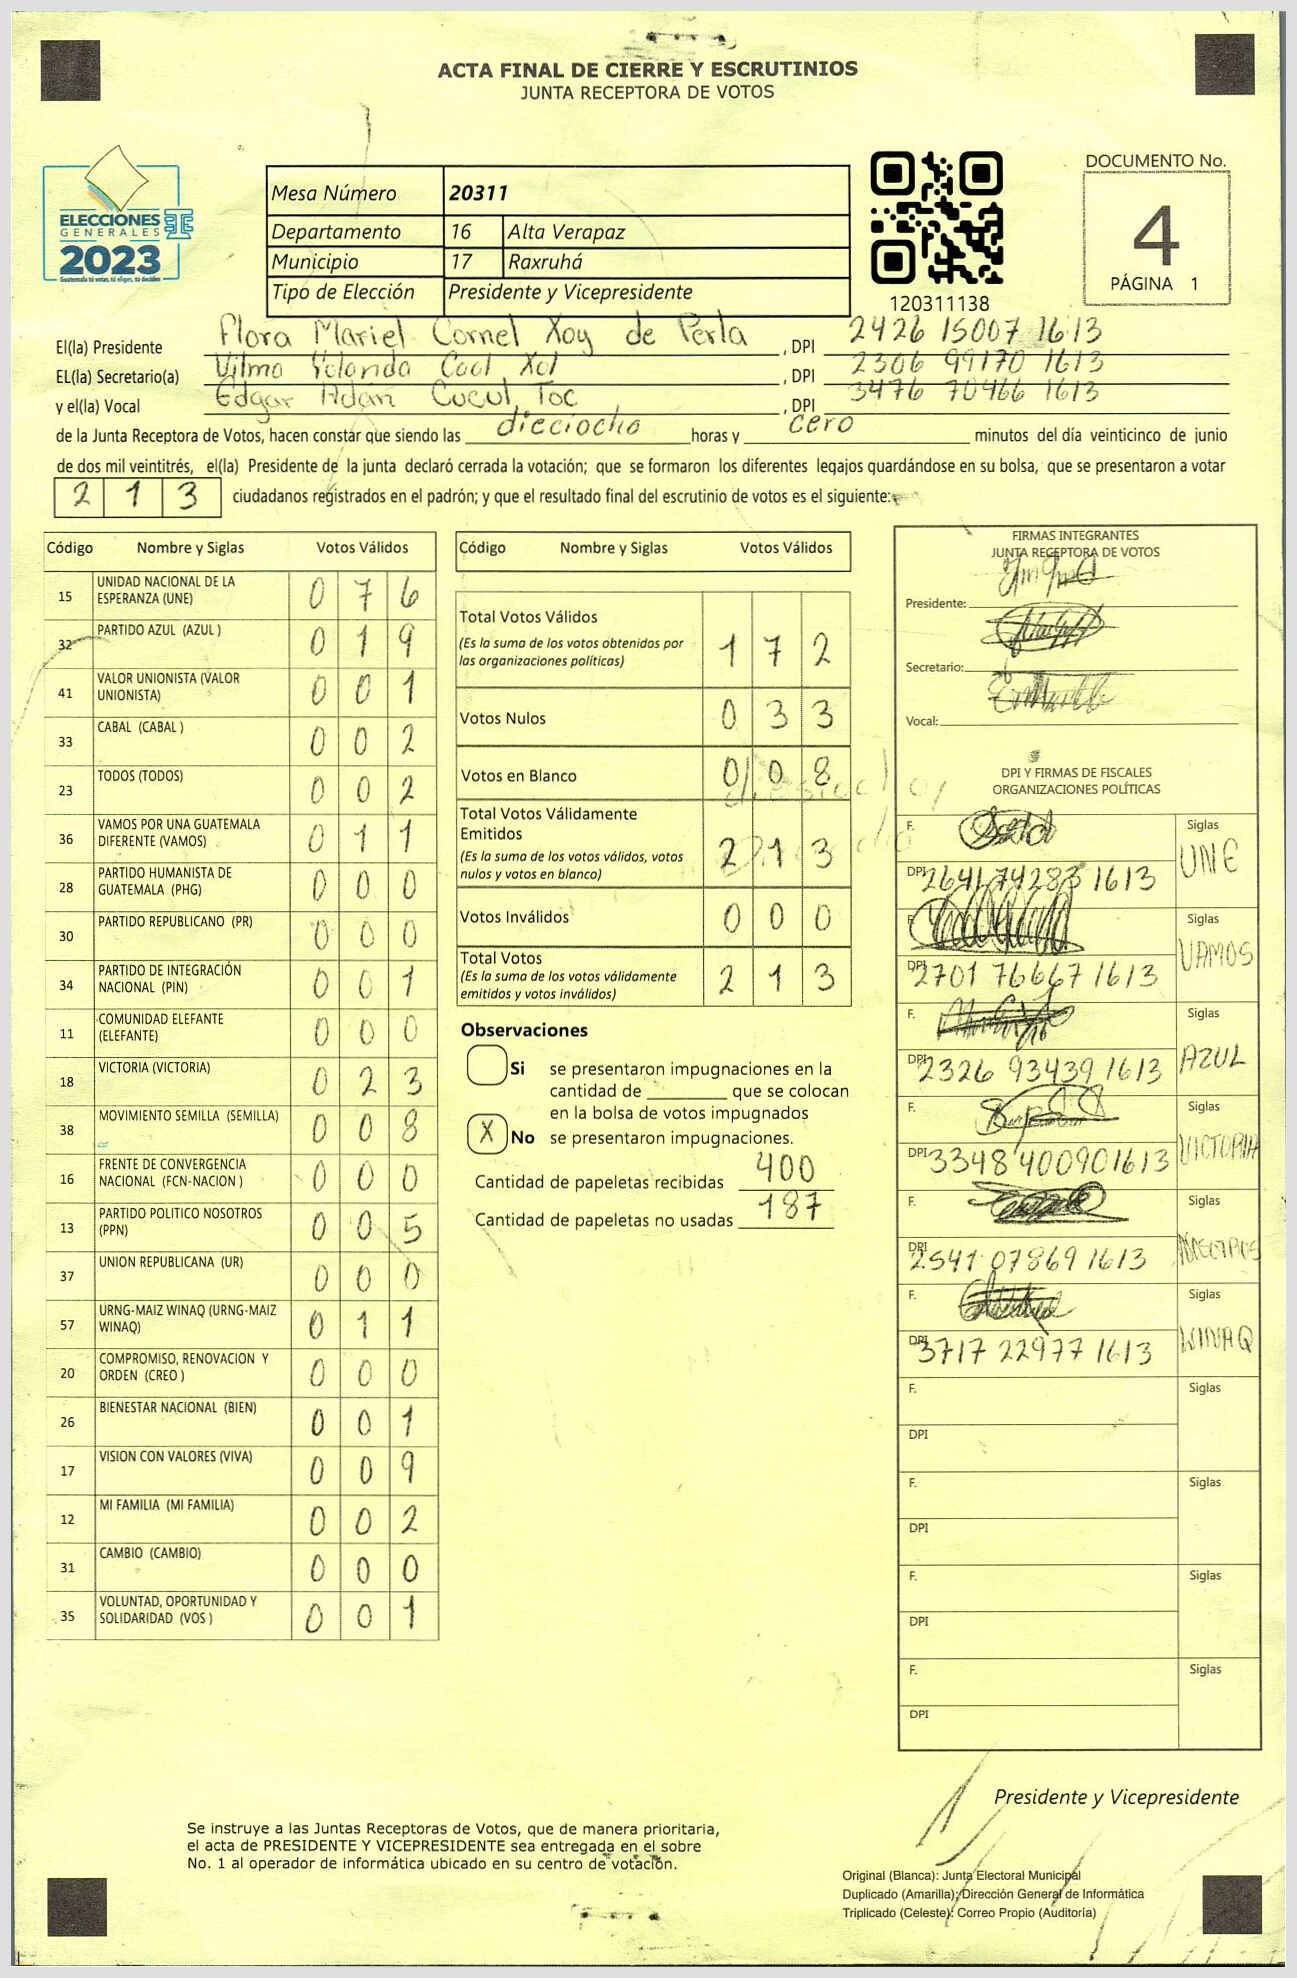 ACTA FINAL DE CIERRE Y ESCRUTINIOS
JUNTA RECEPTORA DE VOTOS
ELECCIONES
GENERALES
2023
Guatemala tú votas, tú eliges, tú decides
Mesa Número 20311
Departamento 16 Alta Verapaz
Municipio 17 Raxruhá
Tipo de Elección Presidente y Vicepresidente
120311138
DOCUMENTO No.
4
PÁGINA 1
El(la) Presidente Flora Mariel Cornel Xoy de Perla , DPI 2426 15007 1613
EL(la) Secretario(a) Vilma Yolanda Caal Xol , DPI 2306 99170 1613
y el(la) Vocal Edgar Adan Cucul Toc , DPI 3476 70466 1613
de la Junta Receptora de Votos, hacen constar que siendo las dieciocho horas y cero minutos del día veinticinco de junio
de dos mil veintitrés, el(la) Presidente de la junta declaró cerrada la votación; que se formaron los diferentes legajos guardándose en su bolsa, que se presentaron a votar
213 ciudadanos registrados en el padrón; y que el resultado final del escrutinio de votos es el siguiente:
Código Nombre y Siglas Votos Válidos
15 UNIDAD NACIONAL DE LA ESPERANZA (UNE) 0 7 6
32 PARTIDO AZUL (AZUL ) 0 1 9
41 VALOR UNIONISTA (VALOR UNIONISTA) 0 0 1
33 CABAL (CABAL ) 0 0 2
23 TODOS (TODOS) 0 0 2
36 VAMOS POR UNA GUATEMALA DIFERENTE (VAMOS) 0 1 1
28 PARTIDO HUMANISTA DE GUATEMALA (PHG) 0 0 0
30 PARTIDO REPUBLICANO (PR) 0 0 0
34 PARTIDO DE INTEGRACIÓN NACIONAL (PIN) 0 0 1
11 COMUNIDAD ELEFANTE (ELEFANTE) 0 0 0
18 VICTORIA (VICTORIA) 0 2 3
38 MOVIMIENTO SEMILLA (SEMILLA) 0 0 8
16 FRENTE DE CONVERGENCIA NACIONAL (FCN-NACION ) 0 0 0
13 PARTIDO POLITICO NOSOTROS (PPN) 0 0 5
37 UNION REPUBLICANA (UR) 0 0 0
57 URNG-MAIZ WINAQ (URNG-MAIZ WINAQ) 0 1 1
20 COMPROMISO, RENOVACION Y ORDEN (CREO ) 0 0 0
26 BIENESTAR NACIONAL (BIEN) 0 0 1
17 VISION CON VALORES (VIVA) 0 0 9
12 MI FAMILIA (MI FAMILIA) 0 0 2
31 CAMBIO (CAMBIO) 0 0 0
35 VOLUNTAD, OPORTUNIDAD Y SOLIDARIDAD (VOS ) 0 0 1
Código Nombre y Siglas Votos Válidos
Total Votos Válidos
(Es la suma de los votos obtenidos por las organizaciones políticas) 1 7 2
Votos Nulos 0 3 3
Votos en Blanco 0 0 8
Total Votos Válidamente Emitidos
(Es la suma de los votos válidos, votos nulos y votos en blanco) 2 1 3
Votos Inválidos 0 0 0
Total Votos
(Es la suma de los votos válidamente emitidos y votos inválidos) 2 1 3
Observaciones
Si se presentaron impugnaciones en la
cantidad de ________ que se colocan
en la bolsa de votos impugnados
X No se presentaron impugnaciones.
Cantidad de papeletas recibidas 400
Cantidad de papeletas no usadas 187
FIRMAS INTEGRANTES
JUNTA RECEPTORA DE VOTOS
Presidente:
Secretario:
Vocal:
DPI Y FIRMAS DE FISCALES
ORGANIZACIONES POLÍTICAS
F. Siglas UNE
DPI 2641 74283 1613
F. Siglas VAMOS
DPI 2701 76667 1613
F. Siglas AZUL
DPI 2326 93439 1613
F. Siglas VICTORIA
DPI 3348 40090 1613
F. Siglas
DPI 2541 07869 1613
F. Siglas WINAQ
DPI 3717 22977 1613
F. Siglas
DPI
F. Siglas
DPI
F. Siglas
DPI
F. Siglas
DPI
Presidente y Vicepresidente
Se instruye a las Juntas Receptoras de Votos, que de manera prioritaria,
el acta de PRESIDENTE Y VICEPRESIDENTE sea entregada en el sobre
No. 1 al operador de informática ubicado en su centro de votación.
Original (Blanca): Junta Electoral Municipal
Duplicado (Amarilla): Dirección General de Informática
Triplicado (Celeste): Correo Propio (Auditoría)